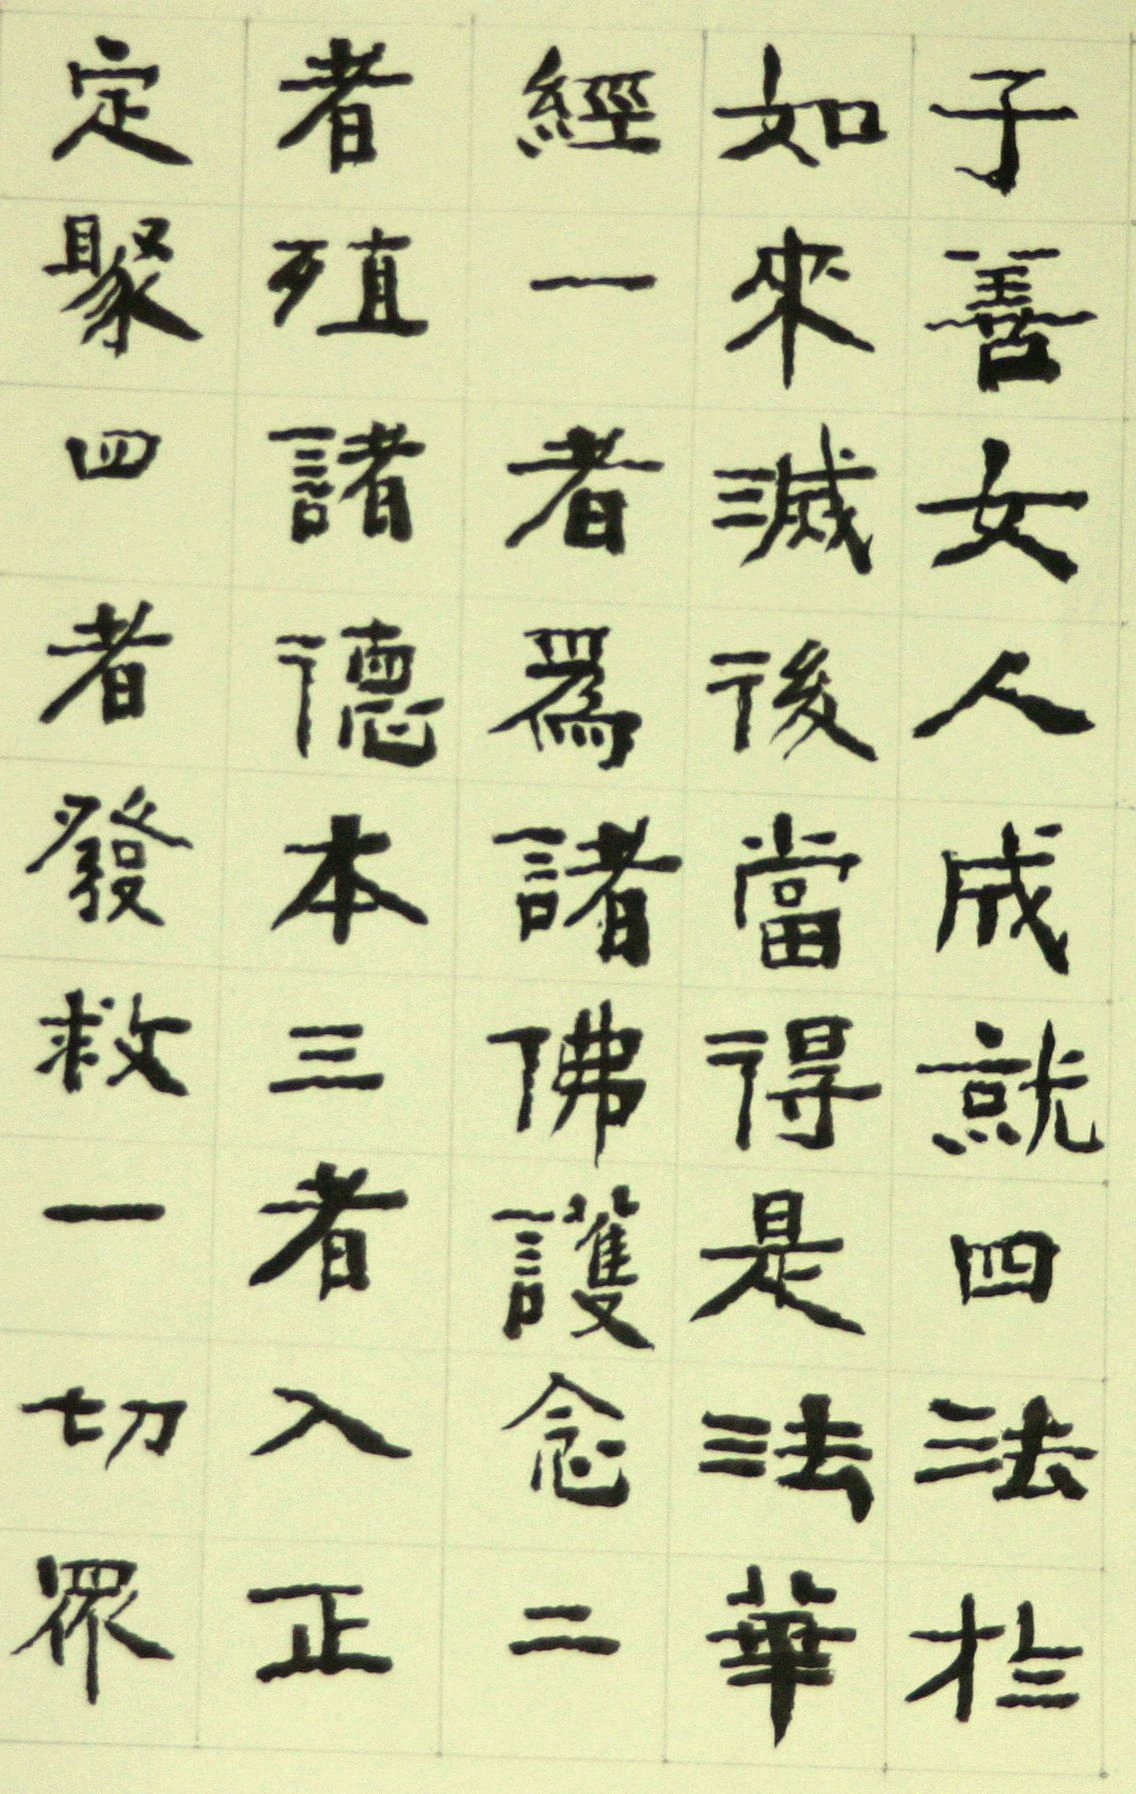 子善女人成就四法於
如來滅後當得是法華
經一者爲諸佛護念二
者殖諸德本三者入正
定聚四者發救一切眾